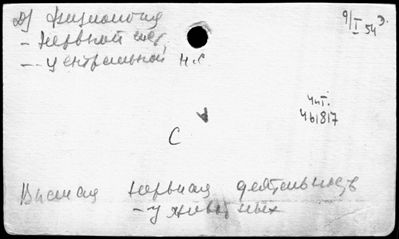 2) Физиология
- нервной сист.
- центральной н.с.
9/I 54 э.
Чит.
461817
С
Высшая нервная деятельность
- у животных